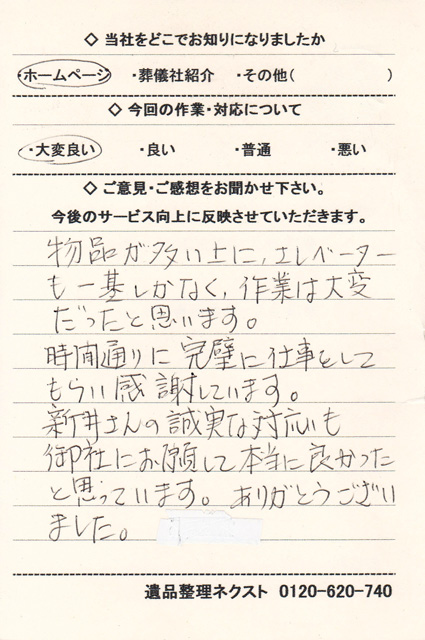 ◇ 当社をどこでお知りになりましたか
・ホームページ ・葬儀社紹介 ・その他( )
◇ 今回の作業・対応について
・大変良い ・良い ・普通 ・悪い
◇ ご意見・ご感想をお聞かせ下さい。
今後のサービス向上に反映させていただきます。
物品が多い上に,エレベーター
も一基しかなく,作業は大変
だったと思います。
時間通りに完璧に仕事をして
もらい感謝しています。
新井さんの誠実な対応も
御社にお願して本当に良かった
と思っています。ありがとうござい
ました。
遺品整理ネクスト 0120-620-740